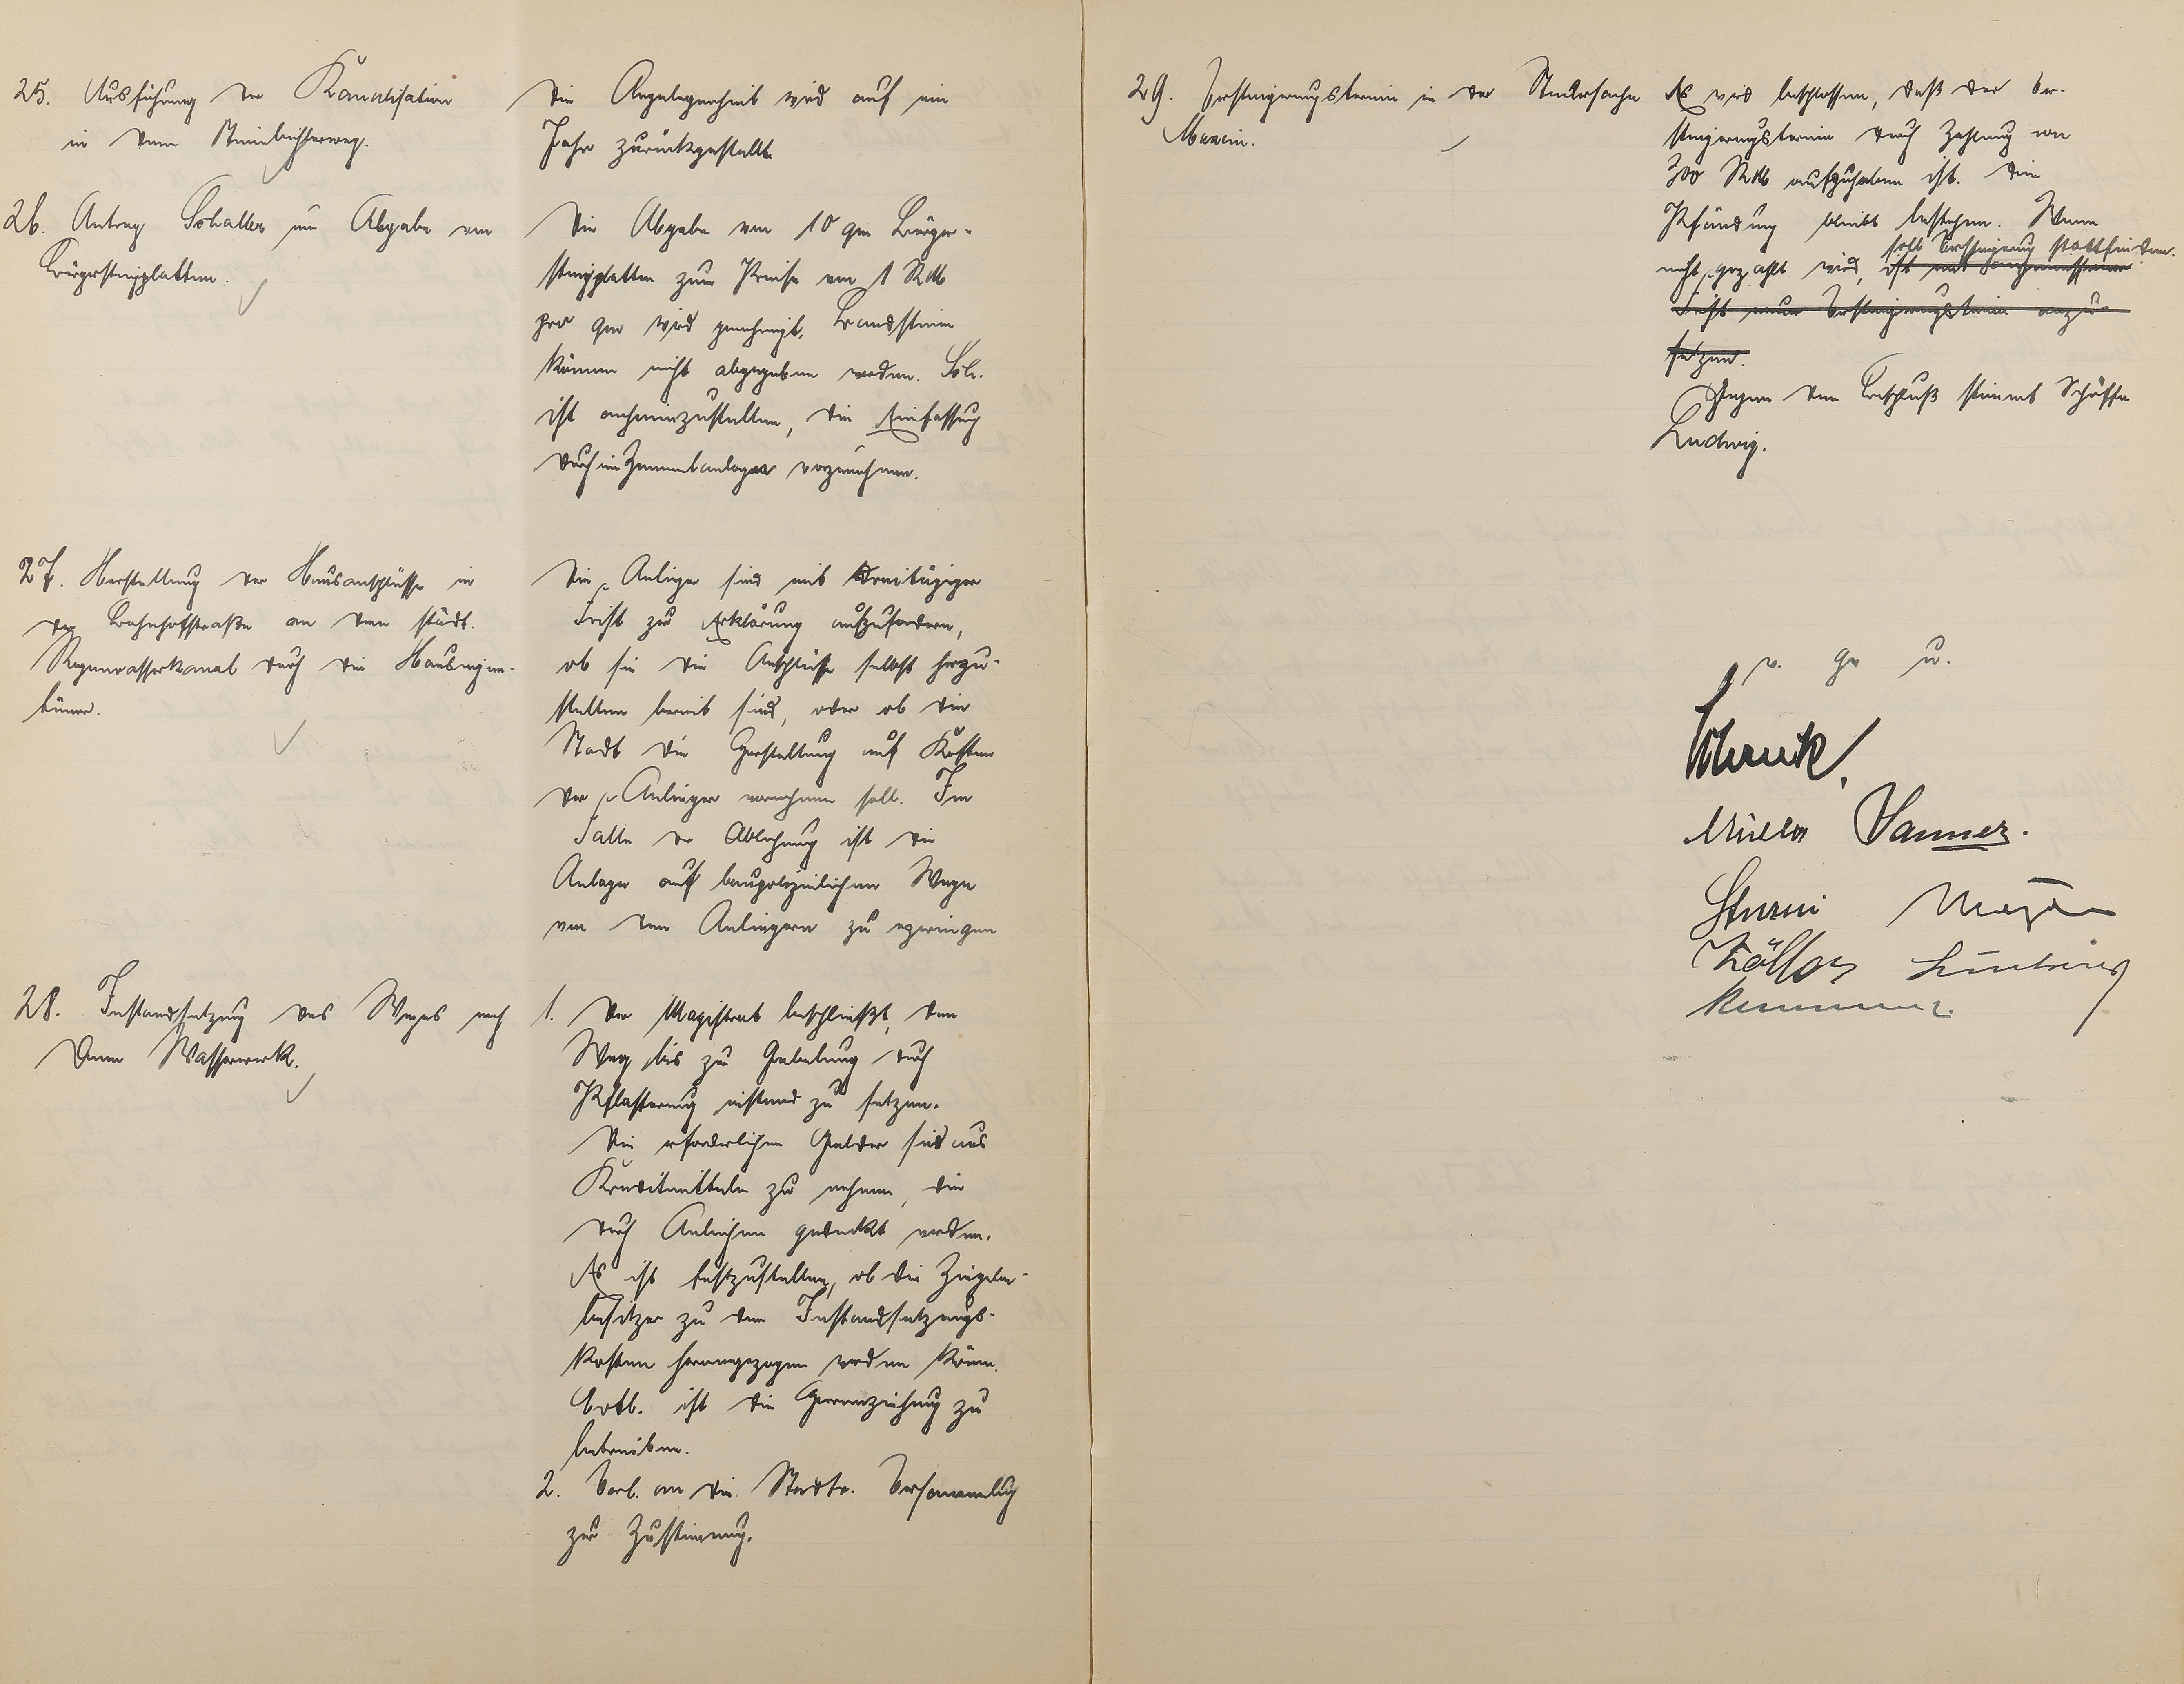 25. Ausführung der Kanalisation
in dem Steinbeißerweg.
Die Angelegenheit wird auf ein
Jahr zurückgestellt.
26. Antrag Schaller um Abgabe von
Bürgersteigplatten.
Die Abgabe von 10 qm Bürger-
steigplatten zum Preise von 1 RM
pro qm wird genehmigt. Bandsteine
können nicht abgegeben werden. Sch.
ist anheimzustellen, die Einfassung
durch ein Zementanlager vorzunehmen.
27. Herstellung der Hausanschlüsse in
der Bahnhofstraße an den städt.
Regenwasserkanal durch die Hauseigen-
tümer.
Die Anlieger sind mit dreitägiger
Frist zur Erklärung aufzufordern,
ob sie die Anschlüsse selbst herzu-
stellen bereit sind, oder ob die
Stadt die Herstellung auf Kosten
der Anlieger vornehmen soll. Im
Falle der Ablehnung ist die
Anlage auf baupolizeilichem Wege
von den Anliegern zu erzwingen
28. Instandsetzung des Weges nach
dem Wasserwerk.
1. Der Magistrat beschließt, den
Weg bis zur Gabelung durch
Pflasterung instand zu setzen.
Die erforderlichen Gelder sind aus
Kreditmitteln zu nehmen, die
durch Anleihen gedeckt werden.
Es ist festzustellen, ob die Ziegelei-
besitzer zu den Instandsetzungs-
kosten herangezogen werden können.
Evtl. ist die Heranziehung zu
betreiben.
2. Vorl. an die Stadtv. Versammlung
zur Zustimmung.
29. Versteigerungstermin in der Steuersache
Maxein.
Es wird beschlossen, daß der Ver-
steigerungstermin durch Zahlung von
300 RM aufzuheben ist. Die
Pfändung bleibt bestehen. Wenn
soll Versteigerung stattfinden.
nicht gezahlt wird, ist mit angemessener
Frist neuer Versteigerungstermin anzu-
setzen.
Gegen den Beschluß stimmt Schöffe
Ludwig.
v. g. u.
Schenk.
Müller Wanner.
Sturm Meyer
Zöller Ludwig
Kummer.